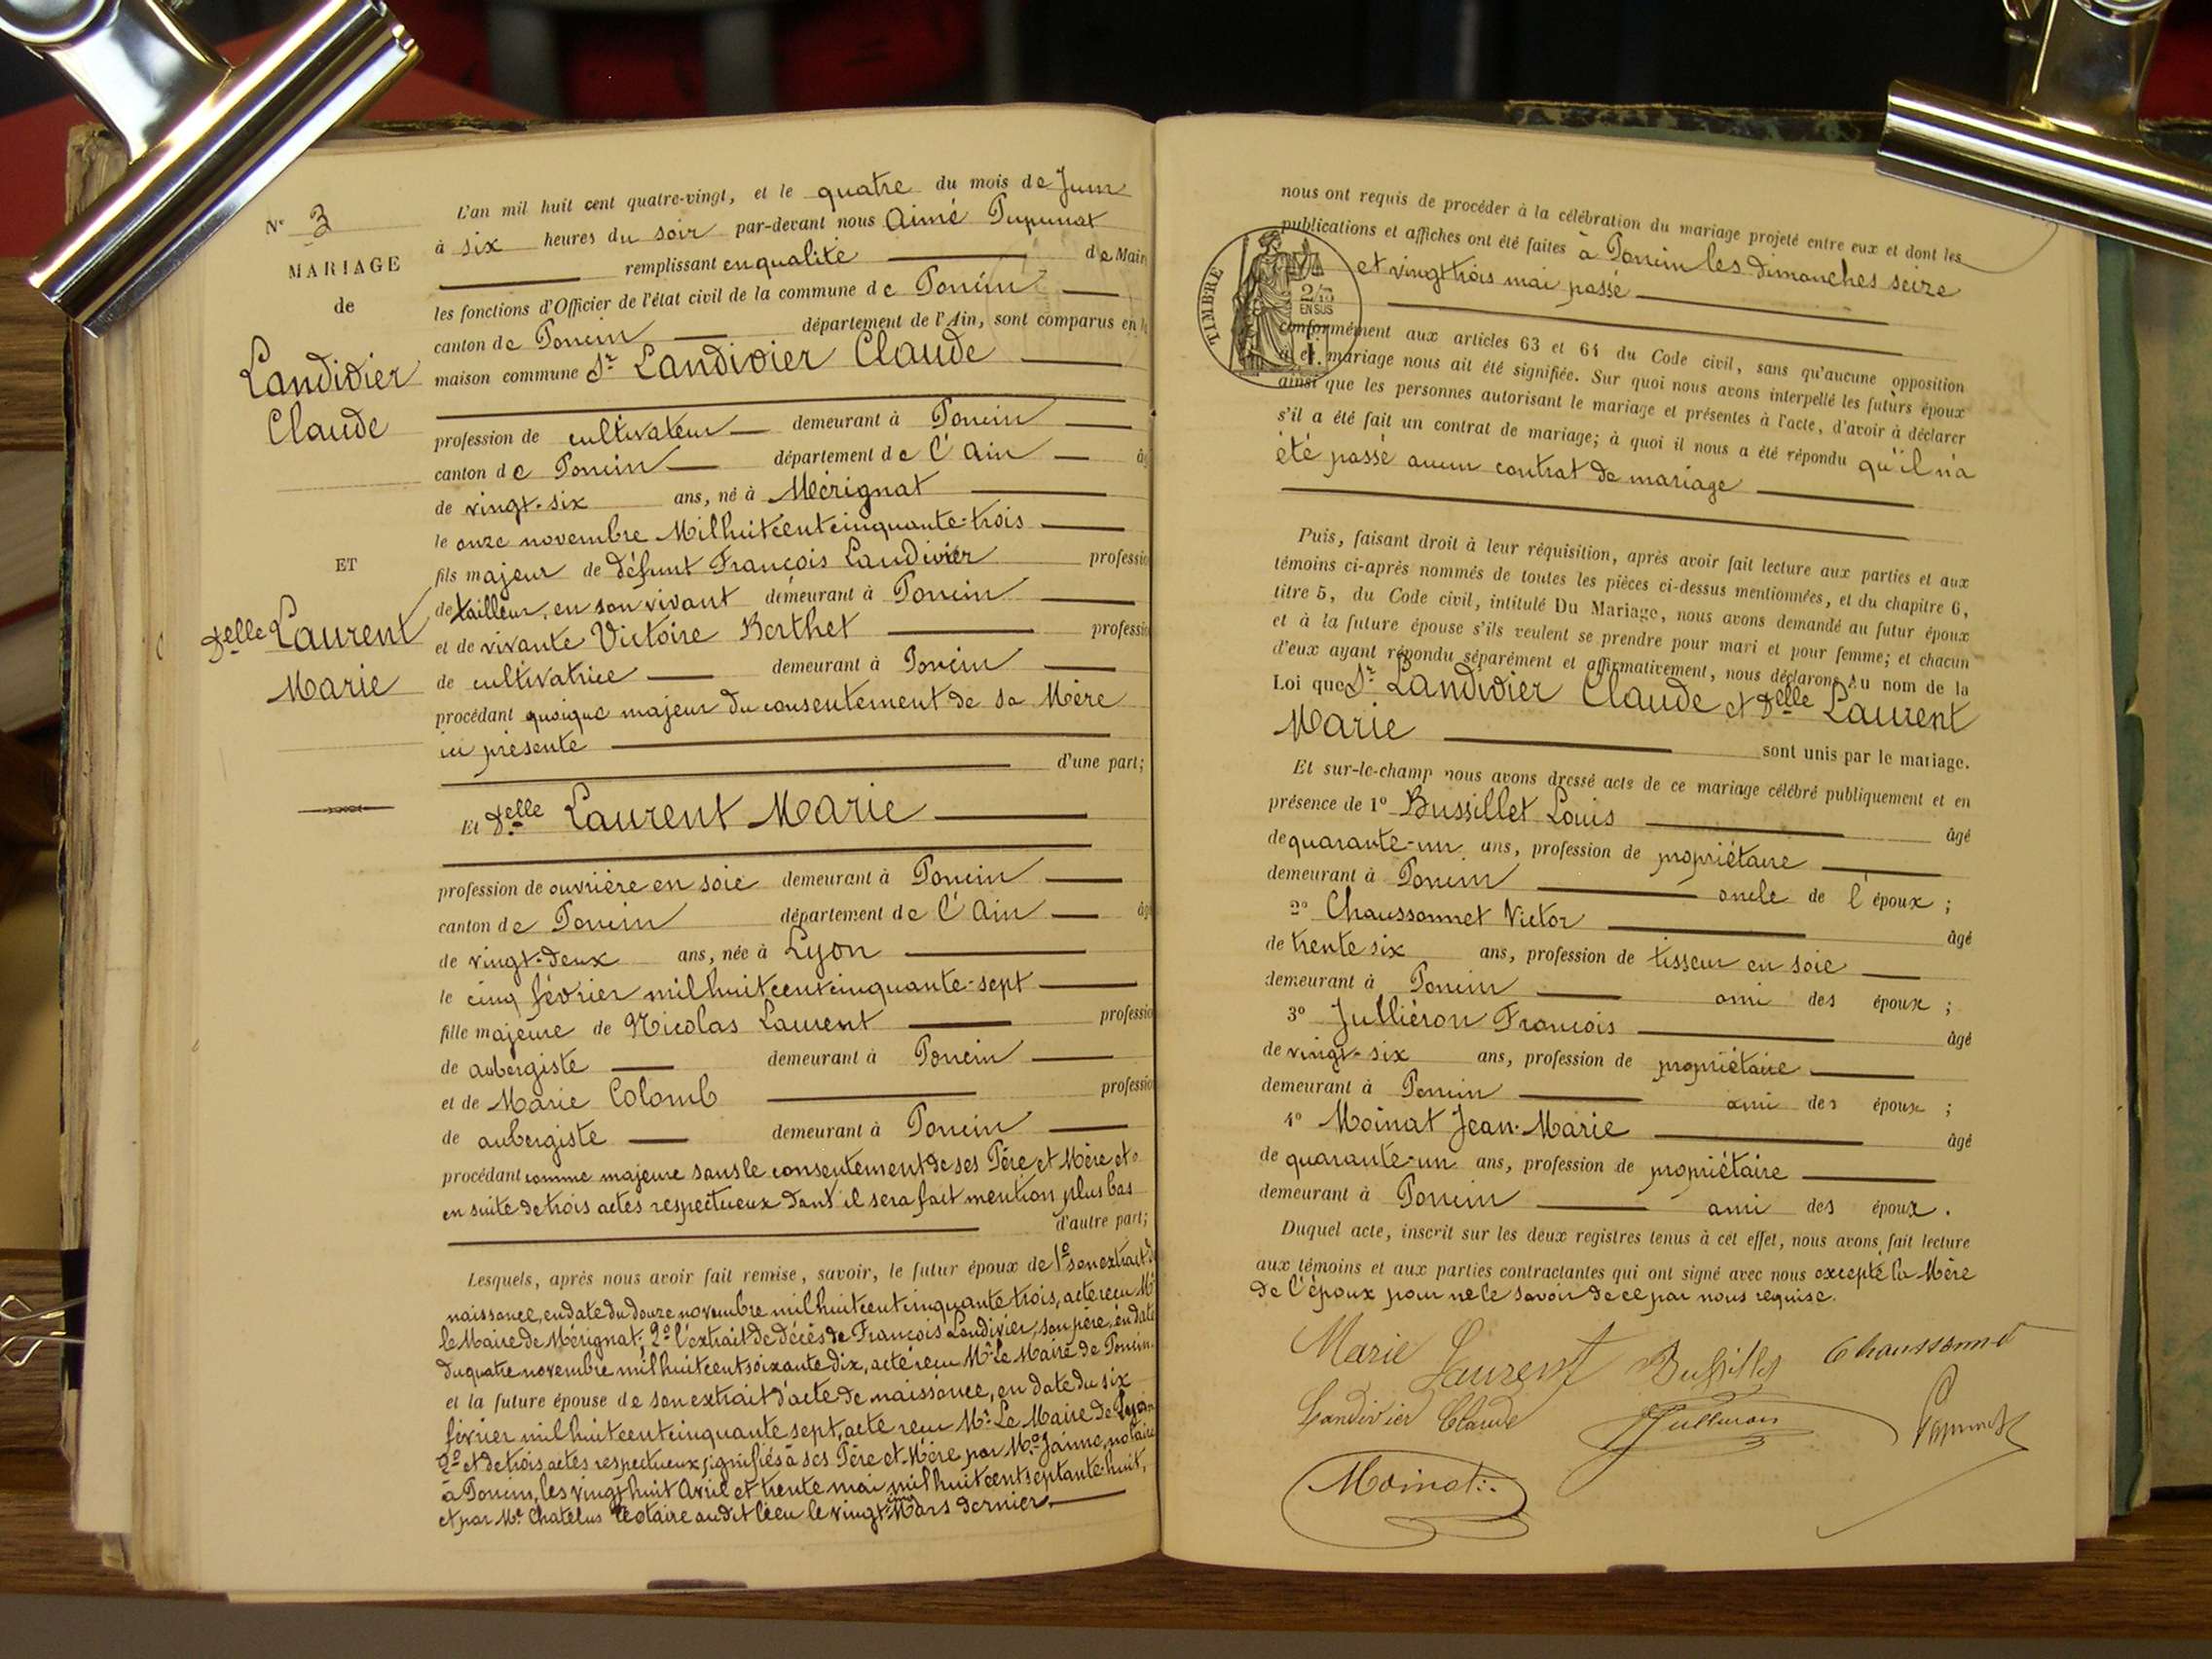 N° 3
MARIAGE
de
Landivier
Claude
ET
Delle Laurent
Marie
L'an mil huit cent quatre-vingt, et le quatre du mois de Juin
à six heures du soir par-devant nous Aimé
remplissant en qualité de Maire
les fonctions d'Officier de l'état civil de la commune de Poncin
canton de Poncin département de l'Ain, sont comparus en la
maison commune Sr Landivier Claude
profession de cultivateur demeurant à Poncin
canton de Poncin département de l'Ain âgé
de vingt-six ans, né à Mérignat
le onze novembre Mil huit cent cinquante-trois
fils majeur de défunt François Landivier profession
de tailleur, en son vivant demeurant à Poncin
et de vivante Victoire Berthet profession
de cultivatrice demeurant à Poncin
procédant quoique majeur du consentement de sa Mère
ici présente
d'une part;
Et Delle Laurent Marie
profession de ouvrière en soie demeurant à Poncin
canton de Poncin département de l'Ain âgé
de vingt-deux ans, née à Lyon
le cinq février mil huit cent cinquante-sept
fille majeure de Nicolas Laurent profession
de aubergiste demeurant à Poncin
et de Marie Colomb profession
de aubergiste demeurant à Poncin
procédant comme majeure sans le consentement de ses Père et Mère et
en suite de trois actes respectueux dont il sera fait mention plus bas
d'autre part;
Lesquels, après nous avoir fait remise, savoir, le futur époux de 1° son extrait de
naissance, en date du douze novembre mil huit cent cinquante trois, acte reçu Mr
le Maire de Mérignat; 2° l'extrait de décès de François Landivier, son père, en date
du quatre novembre mil huit cent soixante dix, acte reçu Mr Le Maire de Poncin.
et la future épouse de son extrait d'acte de naissance, en date du six
février mil huit cent cinquante sept, acte reçu Mr Le Maire de Lyon
2° et de trois actes respectueux signifiés à ses Père et Mère par Me Jaime, notaire
à Poncin, les vingt huit Avril et trente mai mil huit cent septante-huit,
et par Me Chatelus Notaire audit lieu le vingt cinq Mars dernier.
nous ont requis de procéder à la célébration du mariage projeté entre eux et dont les
publications et affiches ont été faites à Poncin les dimanches seize
et vingt trois mai passé
TIMBRE
2/10
EN SUS
1 F.
conformément aux articles 63 et 64 du Code civil, sans qu'aucune opposition
à ce mariage nous ait été signifiée. Sur quoi nous avons interpellé les futurs époux
ainsi que les personnes autorisant le mariage et présentes à l'acte, d'avoir à déclarer
s'il a été fait un contrat de mariage; à quoi il nous a été répondu qu'il n'a
été passé aucun contrat de mariage
Puis, faisant droit à leur réquisition, après avoir fait lecture aux parties et aux
témoins ci-après nommés de toutes les pièces ci-dessus mentionnées, et du chapitre 6,
titre 5, du Code civil, intitulé Du Mariage, nous avons demandé au futur époux
et à la future épouse s'ils veulent se prendre pour mari et pour femme; et chacun
d'eux ayant répondu séparément et affirmativement, nous déclarons au nom de la
Loi que Sr Landivier Claude et Delle Laurent
Marie sont unis par le mariage.
Et sur-le-champ nous avons dressé acte de ce mariage célébré publiquement et en
présence de 1° Bussillet Louis âgé
de quarante-un ans, profession de propriétaire
demeurant à Poncin oncle de l'époux;
2° Chaussonnet Victor âgé
de trente six ans, profession de tisseur en soie
demeurant à Poncin ami des époux;
3° Julliéron François âgé
de vingt-six ans, profession de propriétaire
demeurant à Poncin ami des époux;
4° Moinat Jean-Marie âgé
de quarante-un ans, profession de propriétaire
demeurant à Poncin ami des époux.
Duquel acte, inscrit sur les deux registres tenus à cet effet, nous avons fait lecture
aux témoins et aux parties contractantes qui ont signé avec nous excepté la Mère
de l'époux pour ne le savoir de ce par nous requise.
Marie Laurent Bussillet Chaussonnet
Landivier Claude Julliéron
Moinat